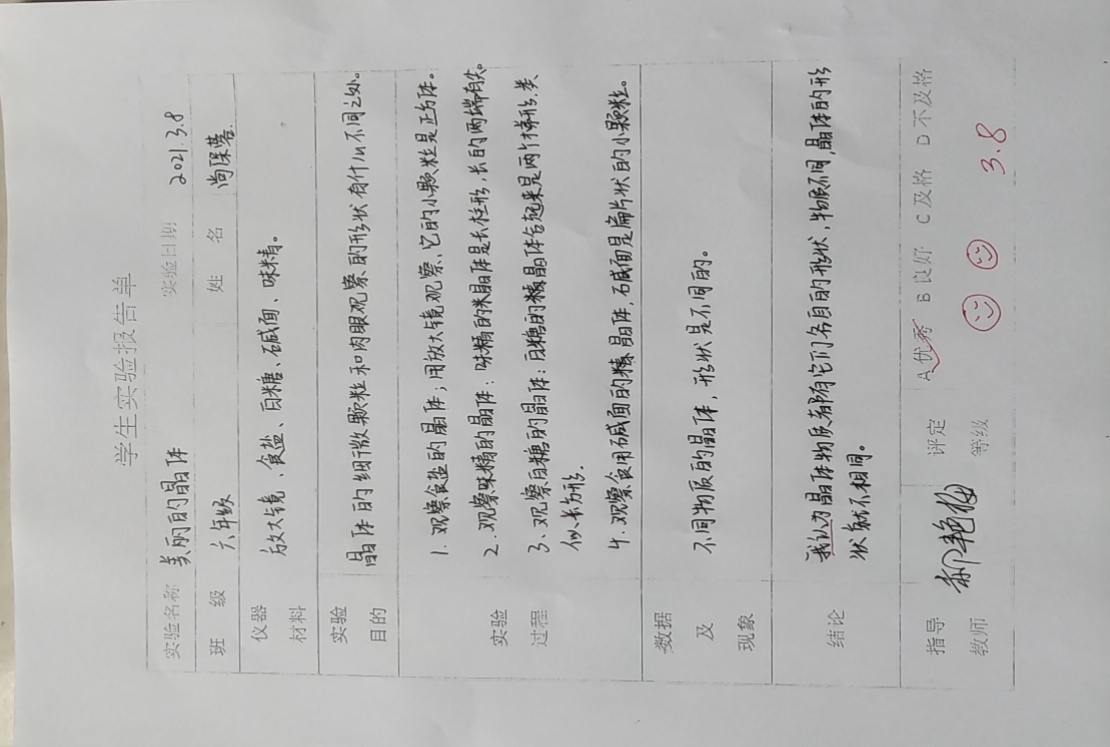 学生实验报告单
实验名称 美丽的晶体 实验日期 2021.3.8
班级 六年级 姓名 尚琛
仪器材料 放大镜、食盐、白糖、碱面、味精。
实验目的 晶体的细微颗粒和肉眼观察的形状有什么不同之处。
实验过程
1. 观察食盐的晶体;用放大镜观察、它的小颗粒是正方体。
2. 观察味精的晶体:味精的米晶体是长柱形,长的两端有尖。
3、观察白糖的晶体:白糖的精晶体合起来是两个梯形,类
似长方形.
4. 观察食用碱面的精晶体,碱面是扁片状的小颗粒。
数据及现象 不同物质的晶体,形状是不同的。
结论 我认为晶体物质都有它们各自的形状,物质不同,晶体的形
状就不相同。
指导教师 柳艳梅 评定等级 A优秀 B良好 C及格 D不及格
3.8